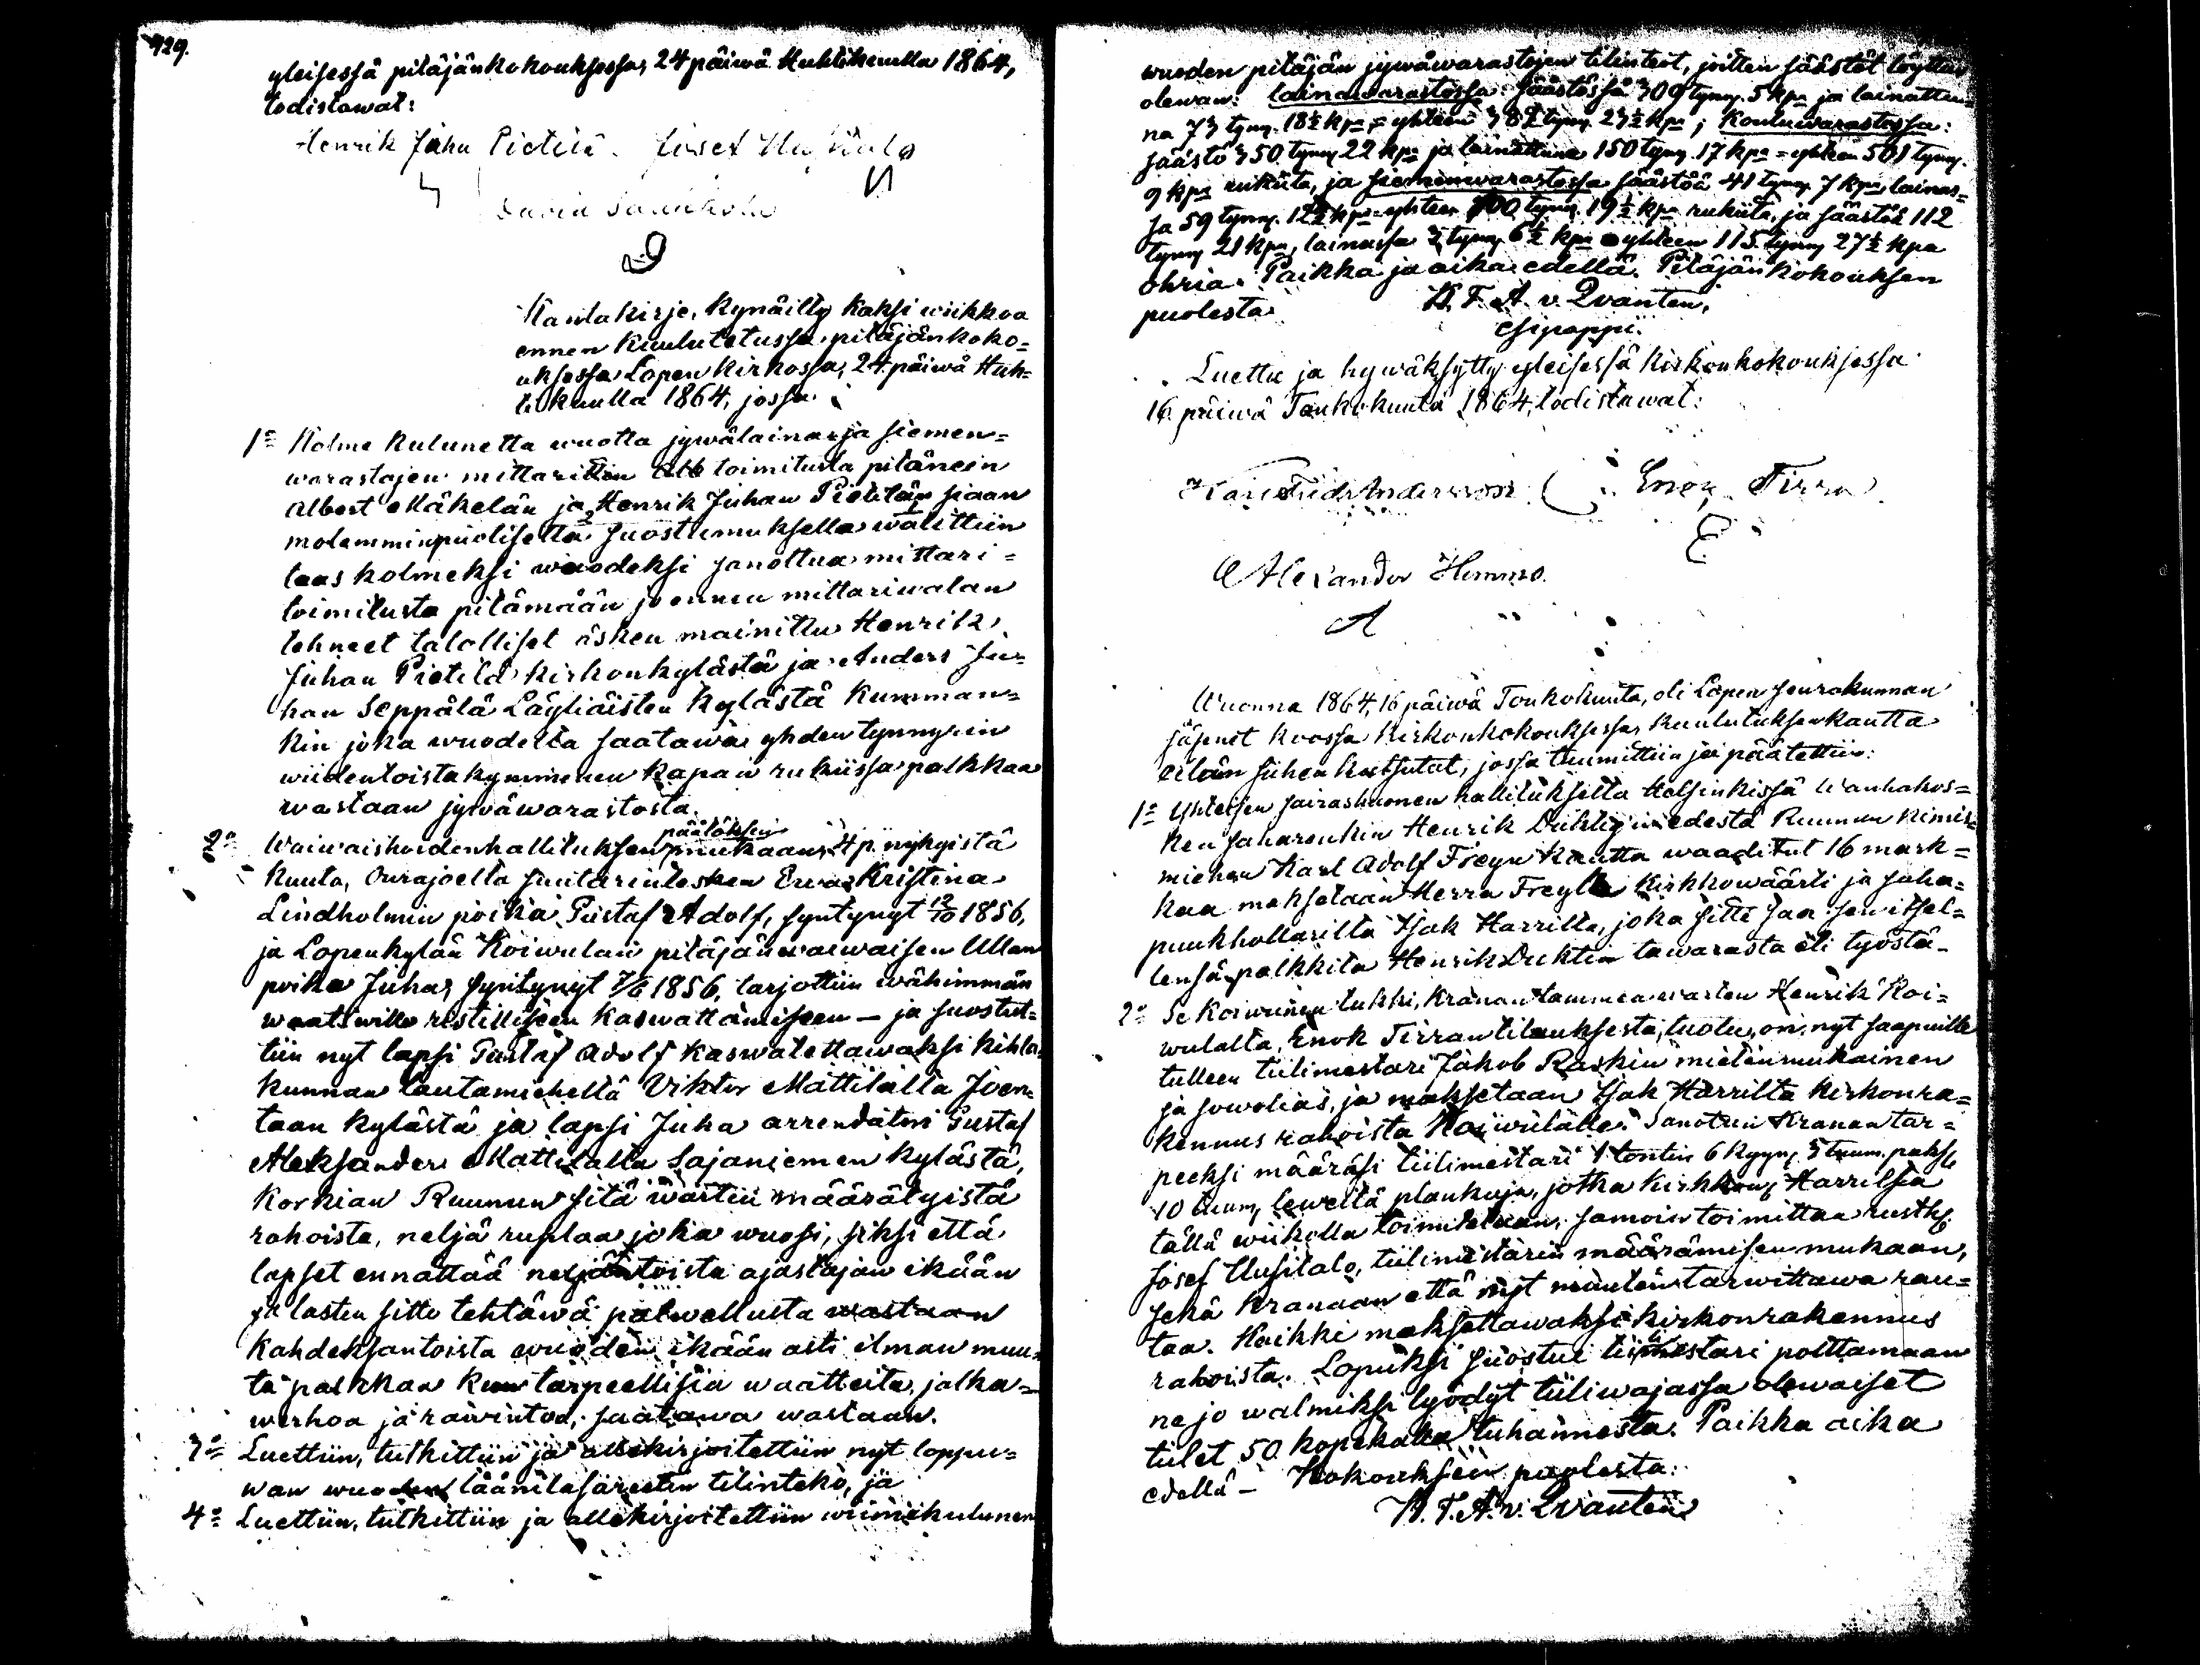 929.
yleisessä pitäjänkokouksessa, 24 päiwä Huhtikuulla 1864,
todistawat:
Henrik Juha Pietilä. Josef Uusitalo
David
Kantakirje, kynäilty kaksi wiikkoa
ennen kuulutetussa pitäjänkoko=
uksessa Lopen kirkossa, 24 päiwä Huh=
tikuulla 1864, jossa
1º Kolme kulunetta wuotta jywälaina- ja siemen=
warastojen mittariton toimitusta pitänein
Albert Mäkelän ja Henrik Juhan Pietilän siaan
molemminpuolisella suostumuksella walittiin
taas kolmeksi wuodeksi sanottua mittari=
toimitusta pitämään jo ennen mittariwalan
tehneet talolliset äsken mainittu Henrik
Juhan Pietilä kirkonkylästä ja Anders Ju=
han Seppälä Läyliäisten kylästä kumman=
kin joka wuodelta saatawa yhden tynnyrin
wiidentoistakymmenen kapan rukiissa palkkaa
wastaan jywäwarastosta.
2º Waiwaishoidenhallituksen päätöksen mukaan, 4 p. nykyistä
kuuta, Ourajoelta suutarinlesken Ewa Kristina
Lindholmin poika Gustaf Adolf, syntynyt 12/10 1856,
ja Lopenkylän Koiwulan pitäjänwaiwaisen Ullan
poika Juha, syntynyt 7/6 1856, tarjottiin wähimmän
waatiwille ristilliseen kaswattamiseen — ja suostut=
tiin nyt lapsi Gustaf Adolf kaswatettawaksi kihla=
kunnan lautamiehellä Viktor Mattilalla Joen=
taan kylästä ja lapsi Juha arrendatori Gustaf
Aleksander Mattilalla Sajaniemen kylästä,
korkian Ruunun sitä warten määrätyistä
rahoista, neljä ruplaa joka wuosi, siksi että
lapset ennättää neljäntoista ajastajan ikään
ja lasten sitte tehtäwä palwellusta wastaan
kahdeksantoista wuoden ikään asti ilman muu=
ta palkkaa kun tarpeellisia waatteita, jalka=
werhoa ja rawintoa, saatawa wastaan.
3º Luettiin, tutkittiin ja allekirjoitettiin nyt loppu=
wan wuoden läänilasaretin tilinteko, ja
4º Luettiin, tutkittiin ja allekirjoitettiin wiimekulunen
wuoden pitäjän jywäwarastojen tilinteot, joitten säästöt löyttiin
olewan: lainawarastossa: säästössä 309 tynn. 5 kpa ja lainattu=
na 73 tynn. 18½ kpa = yhteen 382 tynn. 23½ kpa; Kouluwarastossa:
säästö 350 tynn 22 kpa ja lainattuna 150 tynn. 17 kpa = yhteen 501 tynn.
9 kpa rukiita, ja siemenwarastossa säästöä 41 tynn. 7 kpa, lainas=
sa 59 tynn. 12½ kpa = yhteen 100 tynn. 19½ kpa rukiita, ja säästöä 112
tynn 21 kpa, lainassa 3 tynn. 6½ kpa = yhteen 115 tynn 27½ kpa
ohria. Paikka ja aika edellä. Pitäjänkokouksen
puolesta K. F. A. v. Qvanten,
esipappi.
Luettu ja hywäksytty yleisessä kirkonkokouksessa
16 päiwä Toukokuuta 1864, todistawat:
Karl Fridr Andersson Enok Tirra
E
Alexander Himmo.
A
Wuonna 1864, 16 päiwä Toukokuuta, oli Lopen seurakunnan
jäsenet koossa kirkonkokouksessa, kuulutuksen kautta
siihen kutsutut, jossa tuumittiin ja päätettiin:
1º Yhteisen sairashuonen hallitukselta Helsinkissä Wanhakos=
ken saharenkin Henrik Duktig'in edestä Ruunun kimis=
miehen Karl Adolf Freyn kautta waaditut 16 mark=
kaa maksetaan Herra Freylle kirkkowäärti ja saha=
puukhollarilta Isak Harrilta, joka sitte saa sen itsel=
lensä palkkita Henrik Duktin tawarasta eli työstä.
2º Se koiwuinen tukki, kranan tammea warten Henrik Koi=
wulalta, Enok Tirran tilauksesta, tuotu, on, nyt saapuille
tulleen tiilimestari Jakob Raskin mielen mukainen
ja sowelias, ja maksetaan Isak Harrilta kirkonra=
kennus rahoista Koiwulalle. Sanotun kranan tar=
peeksi määräsi tiilimestari 1 tontin 6 kyyn, 3 tuum. paks,
10 tuum, lewettä plankuja, jotka kirkkow, Harrilta
tällä wiikolla toimitetaan, samoin toimittaa rusth.
Josef Uusitalo, tiilimestarin määrämisen mukaan,
sekä kranaan että nyt muuten tarwittawa rau=
taa. Kaikki maksettawaksi kirkonrakennus
rahoista. Lopuksi suostui tiilimestari polttamaan
ne jo walmiksi lyödyt tiiliwajassa olewaiset
tiilet 50 kopekalla tuhannesta. Paikka aika
edellä — Kokouksen puolesta:
K. F. A. v. Qvanten